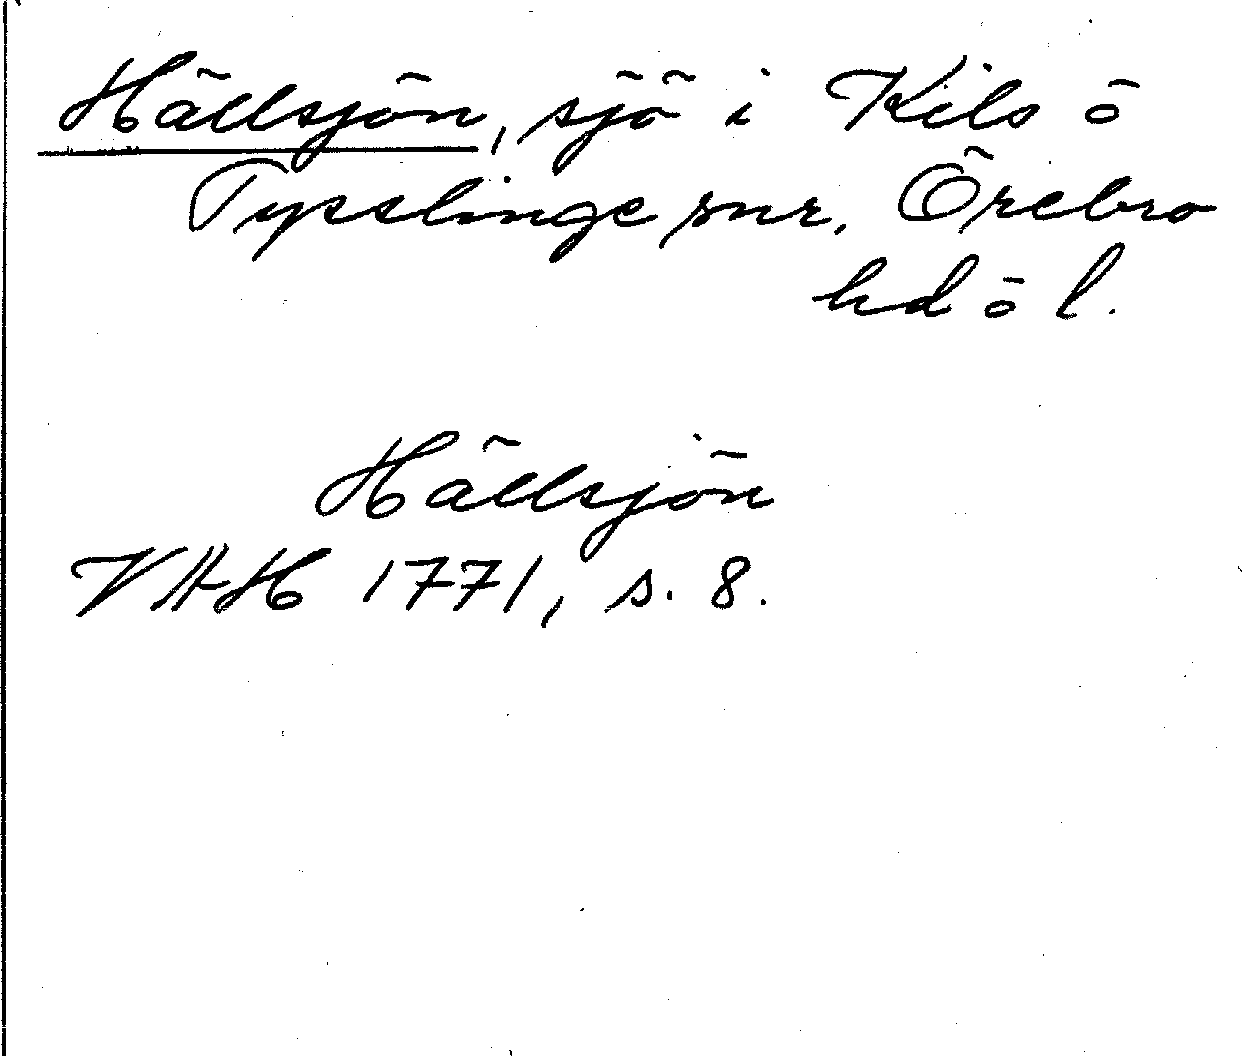 Hällsjön, sjö i Kils ö
Tysslinge snr, Örebro
hd ö l.
Hällsjön
VAH 1771, s. 8.